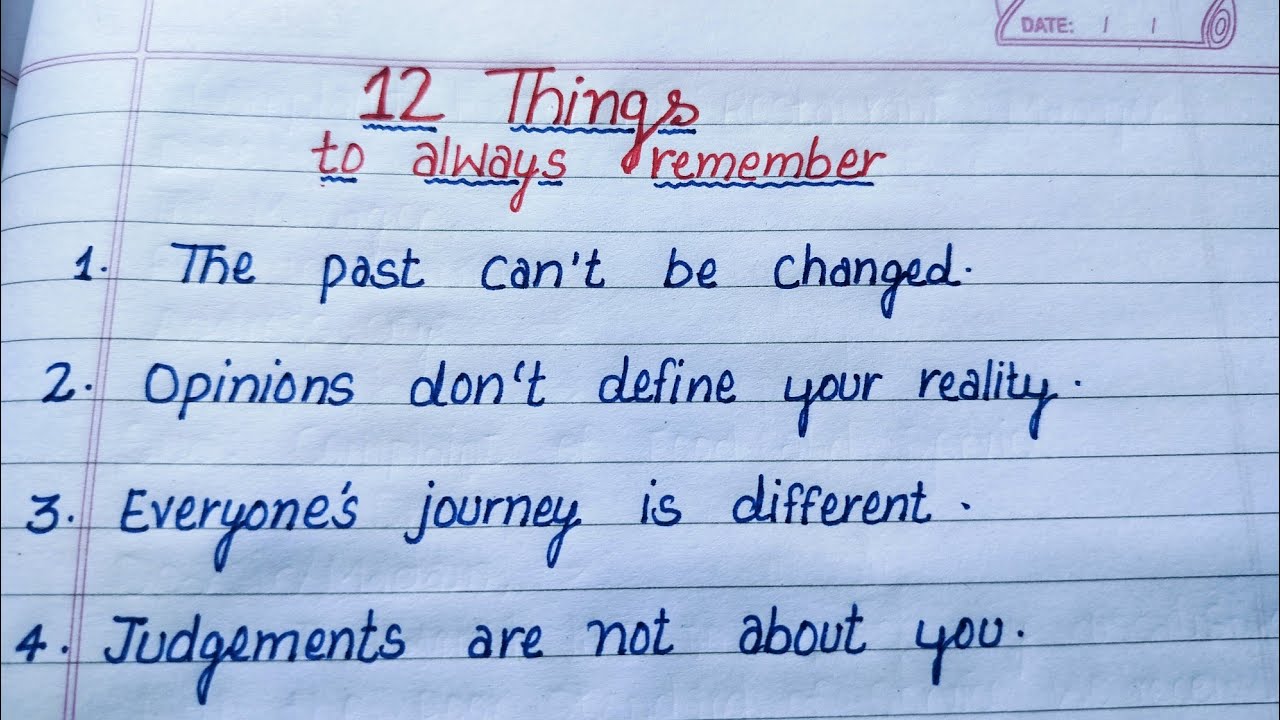 DATE: / /
12 Things
to always remember
1. The past can't be changed.
2. Opinions don't define your reality.
3. Everyone's journey is different.
4. Judgements are not about you.